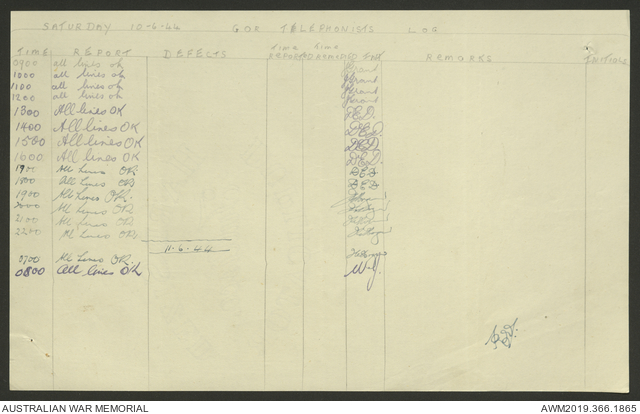 SATURDAY 10-6-44 GOR TELEPHONISTS LOG
TIME REPORT DEFECTS Time REPORTED Time REMARKS INITIALS
0900 all lines ok Grant
1000 all lines ok Grant
1100 all lines ok Grant
1200 all lines ok Grant
1300 All lines OK D.E.D.
1400 All lines OK D.E.D.
1500 All lines OK D.E.D.
1600 All lines OK D.E.D.
1700 All Lines OK DED
1800 All Lines OK DED
1900 All Lines OK.
2000 All Lines OK
2100 All Lines OK
2200 All Lines OK
11-6-44
0700 All Lines OK
0800 All lines OK
AUSTRALIAN WAR MEMORIAL AWM2019.366.1865